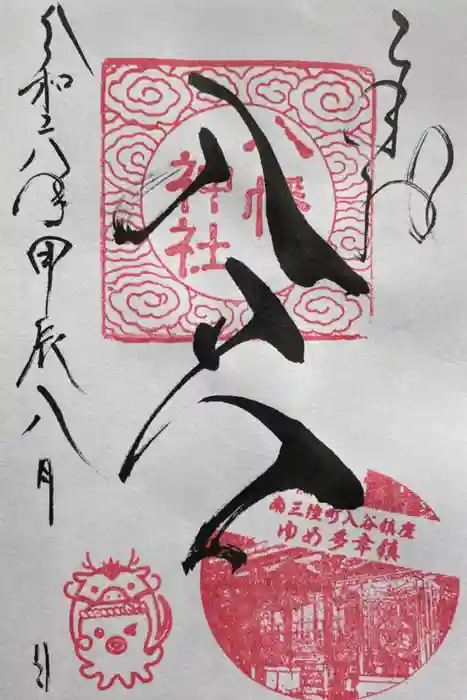 八八八
八幡
神社
令和六年甲辰八月 日
南三陸町入谷鎮座
ゆめ多幸鎮